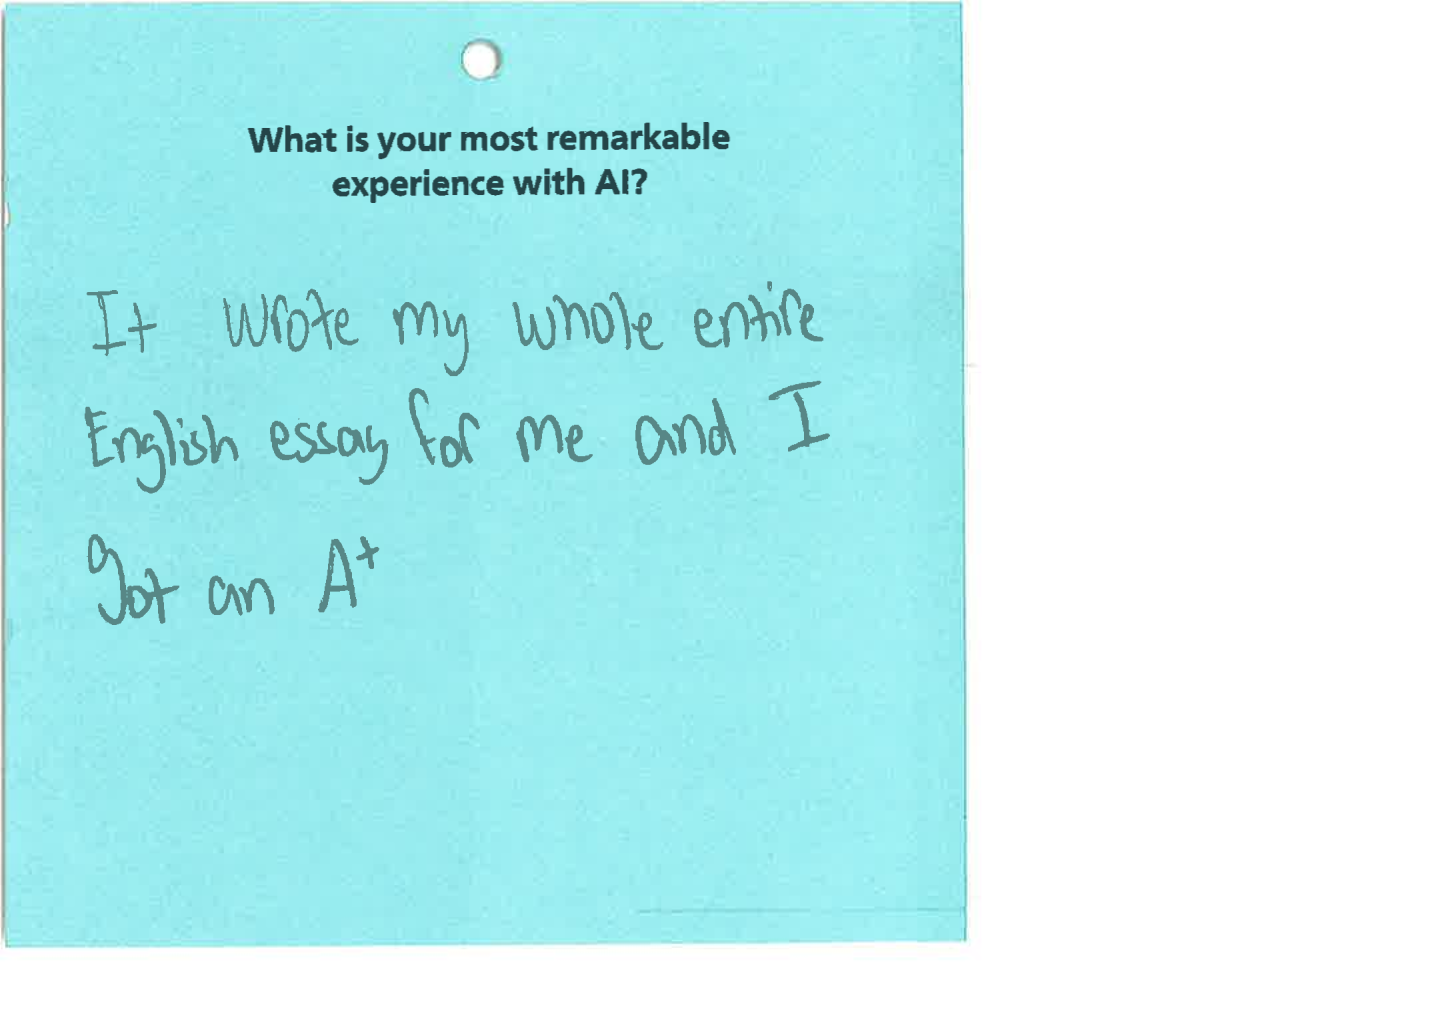 What is your most remarkable
experience with AI?
It wrote my whole entire
English essay for me and I
got an A+